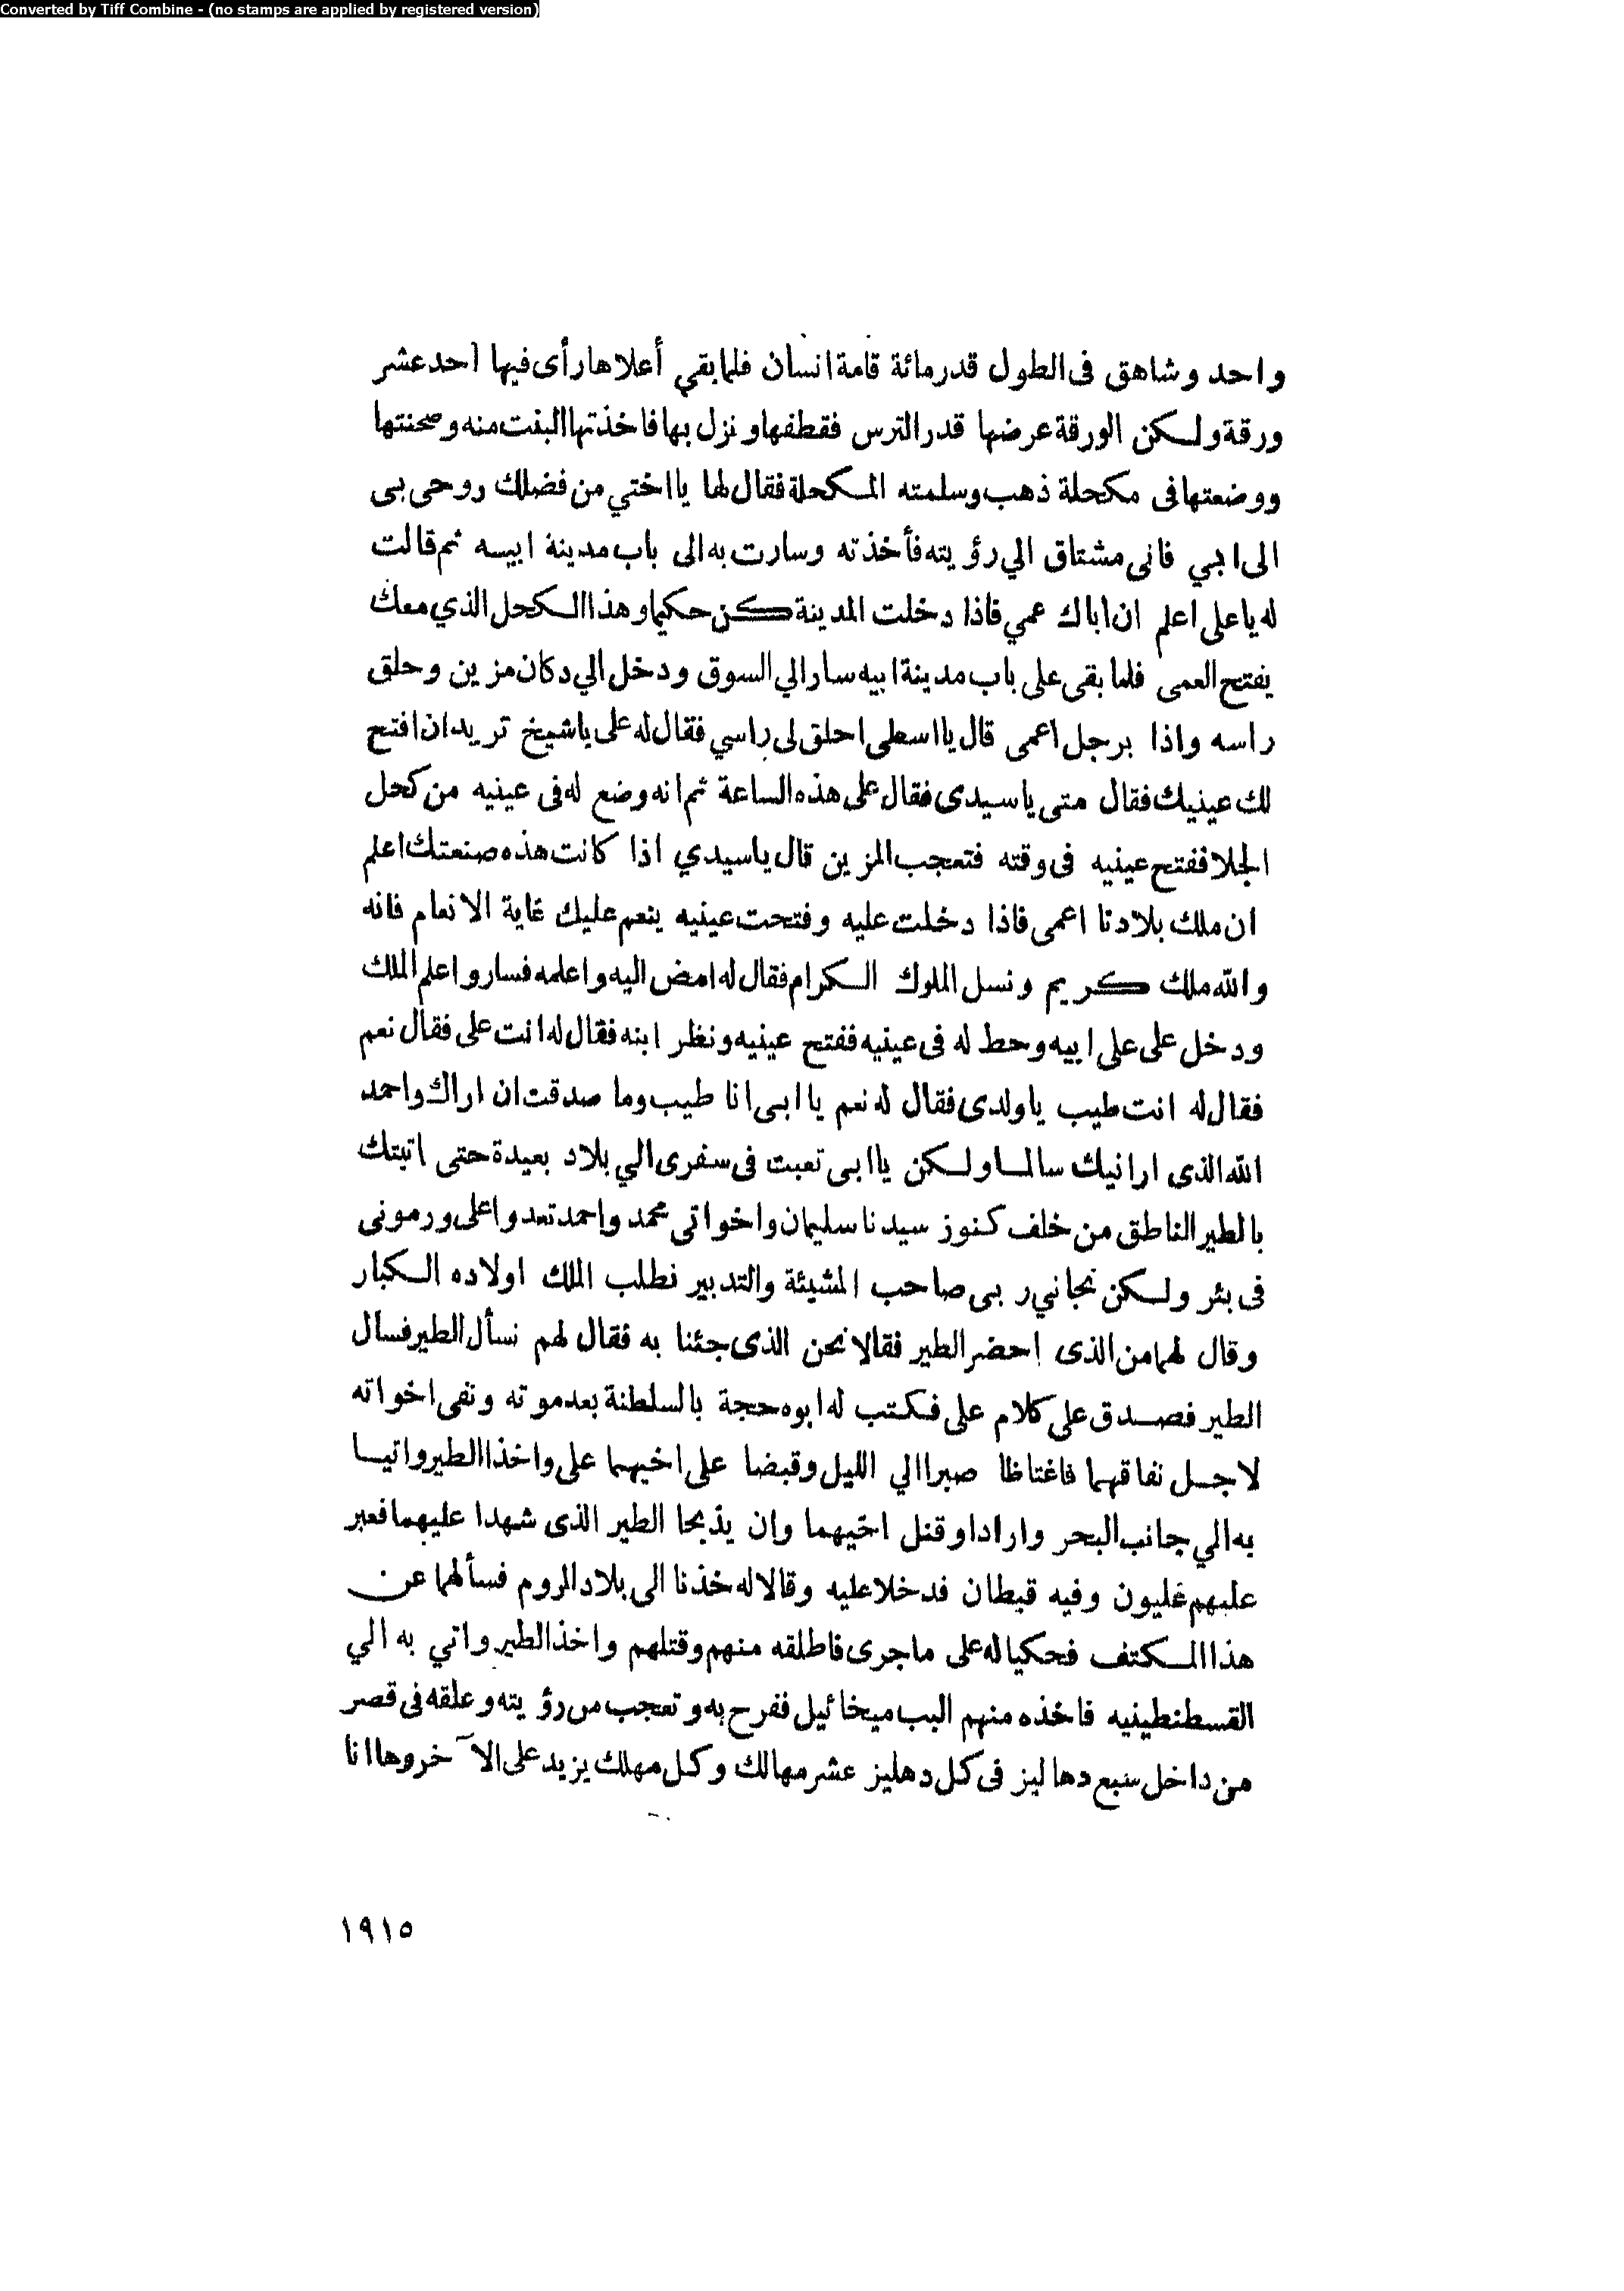 Converted by Tiff Combine - (no stamps are applied by registered version)
واحد وشاهق فى الطول قدر مائة قامة انسان فلما بقي أعلاها رأى فيها احد عشر
ورقة ولكن الورقة عرضها قدر الترس فقطفها ونزل بها فاخذتها البنت منه وصحنتها
ووضعتها فى مكحلة ذهب وسلمته المكحلة فقال لها يا اختي من فضلك روحى بى
الى ابي فانى مشتاق الي رؤيته فأخذته وسارت به الى باب مدينة ابيسه ثم قالت
له يا على اعلم ان اباك عمي فاذا دخلت المدينة كن حكيما وهذا الكحل الذي معك
يفتح العمى فلما بقى على باب مدينة ابيه سار الي السوق ودخل الي دكان مزين وحلق
راسه واذا برجل اعمى قال يا اسطى احلق لى راسي فقال له على يا شيخ تريد ان افتح
لك عينيك فقال متى يا سيدى فقال على هذه الساعة ثم انه وضع له فى عينيه من كحل
الجلا ففتح عينيه فى وقته فتعجب المزين قال يا سيدي اذا كانت هذه صنعتك اعلم
ان ملك بلادنا اعمى فاذا دخلت عليه وفتحت عينيه ينعم عليك غاية الانعام فانه
والله ملك كريم ونسل الملوك الكرام فقال له امض اليه واعلمه فسار واعلم الملك
ودخل على على ابيه وحط له فى عينيه ففتح عينيه ونظر ابنه فقال له انت على فقال نعم
فقال له انت طيب يا ولدى فقال له نعم يا ابى انا طيب وما صدقت ان اراك واحمد
الله الذى ارانيك سالما ولكن يا ابى تعبت فى سفرى الي بلاد بعيدة حتى اتيتك
بالطير الناطق من خلف كنوز سيدنا سليمان واخواتى محمد واحمد تعدوا على ورمونى
فى بئر ولكن نجاني ربى صاحب المشيئة والتدبير فطلب الملك اولاده الكبار
وقال لهما من الذى احضر الطير فقالا نحن الذى جئنا به فقال لهم نسأل الطير فسال
الطير فصدق على كلام على فكتب له ابوه حجة بالسلطنة بعد موته ونفى اخواته
لاجل نفاقهما فاغتاظا صبرا الي الليل وقبضا على اخيهما على واخذا الطير واتيا
به الي جانب البحر وارادا وقتل اخيهما وان يذبحا الطير الذى شهدا عليهما فعبر
عليهم غليون وفيه قبطان فدخلا عليه وقالا له خذنا الى بلاد الروم فسألهما عن
هذا المكتف فحكيا له على ما جرى فاطلقه منهم وقتلهم واخذ الطير واتي به الي
القسطنطينيه فاخذه منهم البب ميخائيل ففرح به وتعجب من رؤيته وعلقه فى قصر
من داخل سبع دهاليز فى كل دهليز عشر مهالك وكل مهلك يزيد على الآخر وها انا
١٩١٥